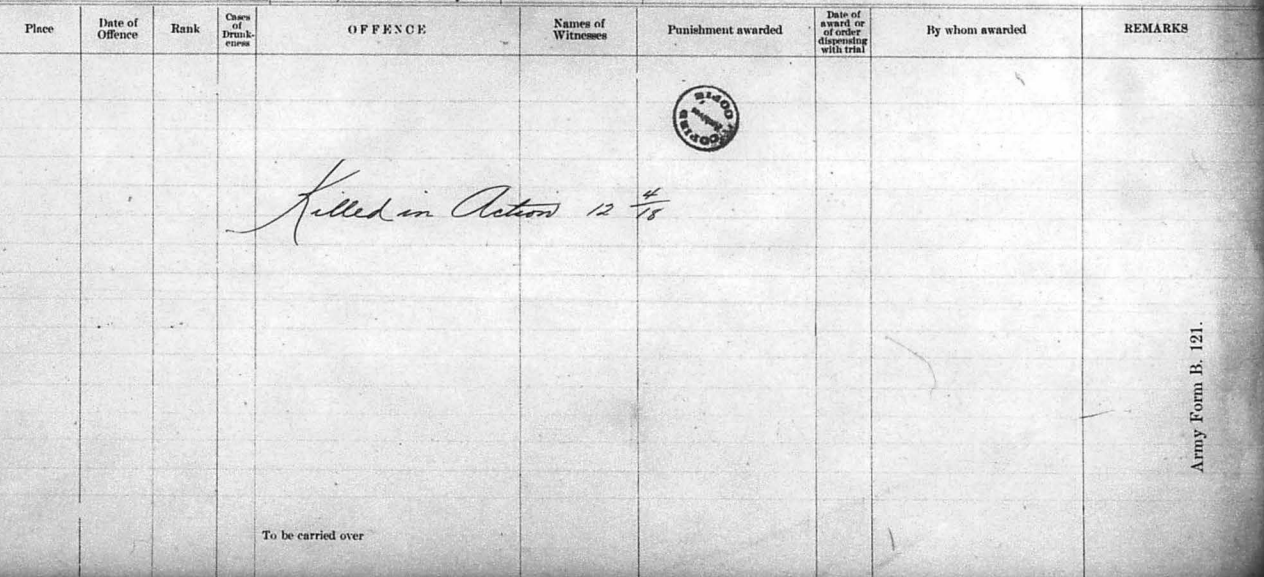 Place
Date of
Offence
Rank
Cases
of
Drunk-
eness
OFFENCE
Names of
Witnesses
Punishment awarded
Date of
award or
of order
dispensing
with trial
By whom awarded
REMARKS
COPIE
COPIE
Killed in Action 12 4/18
Army Form B. 121.
To be carried over